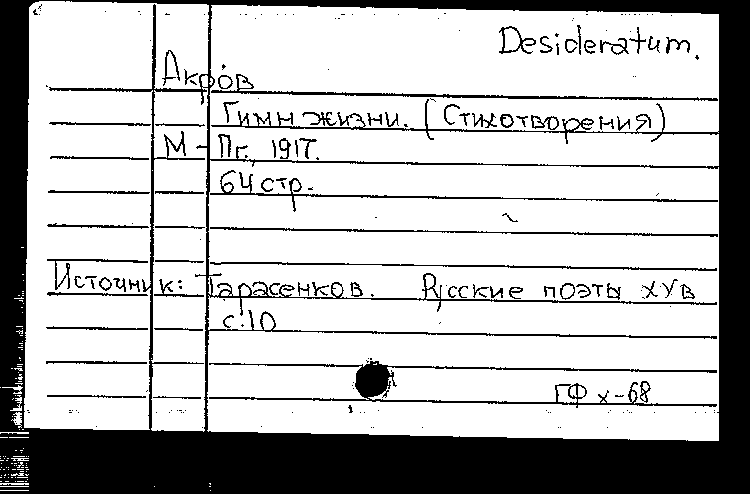 Desideratum.
Акров
Гимн жизни. (Стихотворения)
М - Пг., 1917.
64 стр.
Источник: Тарасенков. Русские поэты ХУв
с.10
ГФ х-68